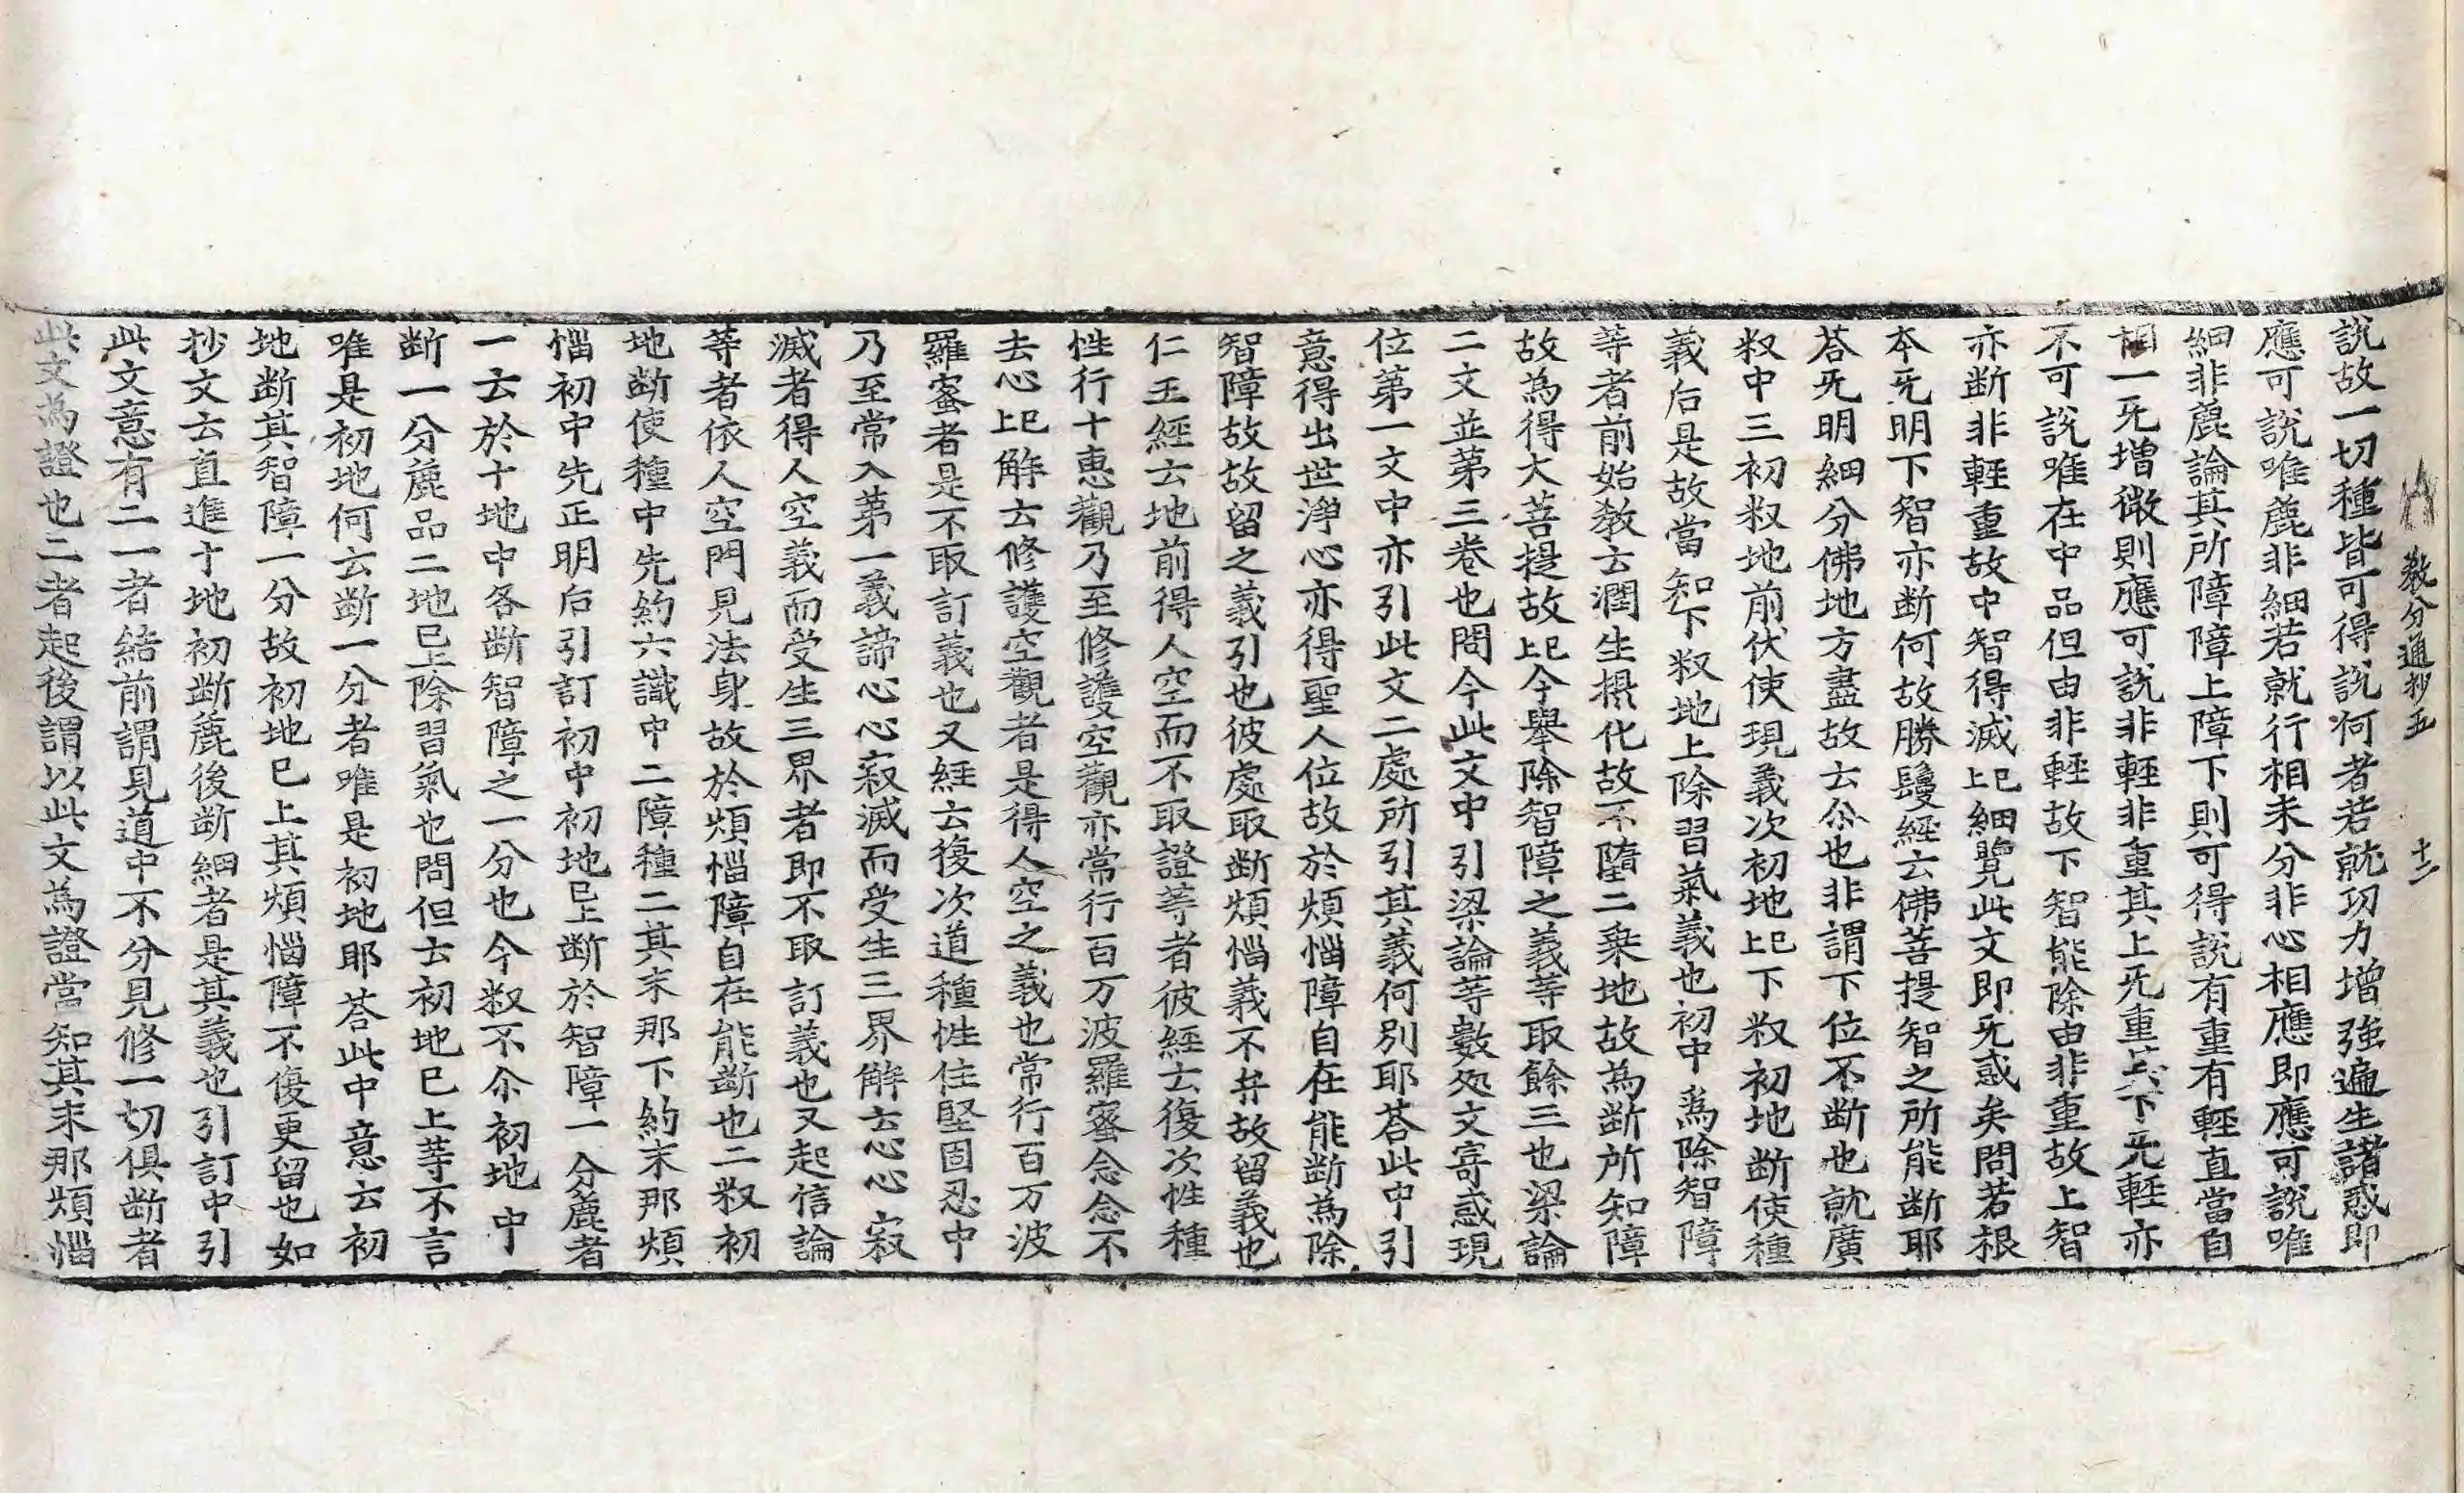 教分通抄五 十二
說故一切種皆可得說何者若就功力增強遍生諸惑即
應可說唯麁非細若就行相未分非心相應即應可說唯
細非麁論其所障障上障下則可得說有重有輕直當自
相一旡增微則應可說非輕非重其上旡重其下旡輕亦
不可說唯在中品但由非輕故下智能除由非重故上智
亦斷非輕重故中智得滅上已細覽此文即旡惑矣問若根
本旡明下智亦斷何故勝鬘經云佛菩提智之所能斷耶
荅旡明細分佛地方盡故云尒也非謂下位不斷也就廣
叙中三初叙地前伏使現義次初地上已下叙初地斷使種
義后是故當知下叙地上除習氣義也初中為除智障
等者前始教云潤生攝化故不墮二乘地故為斷所知障
故為得大菩提故上已今舉除智障之義等取餘三也梁論
二文並苐三卷也問今此文中引梁論等數處文寄惑現
位苐一文中亦引此文二處所引其義何別耶荅此中引
意得出世淨心亦得聖人位故於煩惱障自在能斷為除
智障故故留之義引也彼處取斷煩惱義不弁故留義也
仁王經云地前得人空而不取證等者彼經云復次性種
性行十惠觀乃至修護空觀亦常行百万波羅蜜念念不
去心上已解云修護空觀者是得人空之義也常行百万波
羅蜜者是不取訂義也又經云復次道種性住堅固忍中
乃至常入苐一義諦心心寂滅而受生三界解云心心寂
滅者得人空義而受生三界者即不取訂義也又起信論
等者依人空門見法身故於煩惱障自在能斷也二叙初
地斷使種中先約六識中二障種二其末那下約末那煩
惱初中先正明后引訂初中初地已上斷於智障一分麁者
一云於十地中各斷智障之一分也今叙不尒初地中
斷一分麁品二地已上除習氣也問但云初地已上等不言
唯是初地何云斷一分者唯是初地耶荅此中意云初
地斷其智障一分故初地已上其煩惱障不復更留也如
抄文云直進十地初斷麁後斷細者是其義也引訂中引
此文意有二一者結前謂見道中不分見修一切俱斷者
此文為證也二者起後謂以此文為證當知其末那煩惱